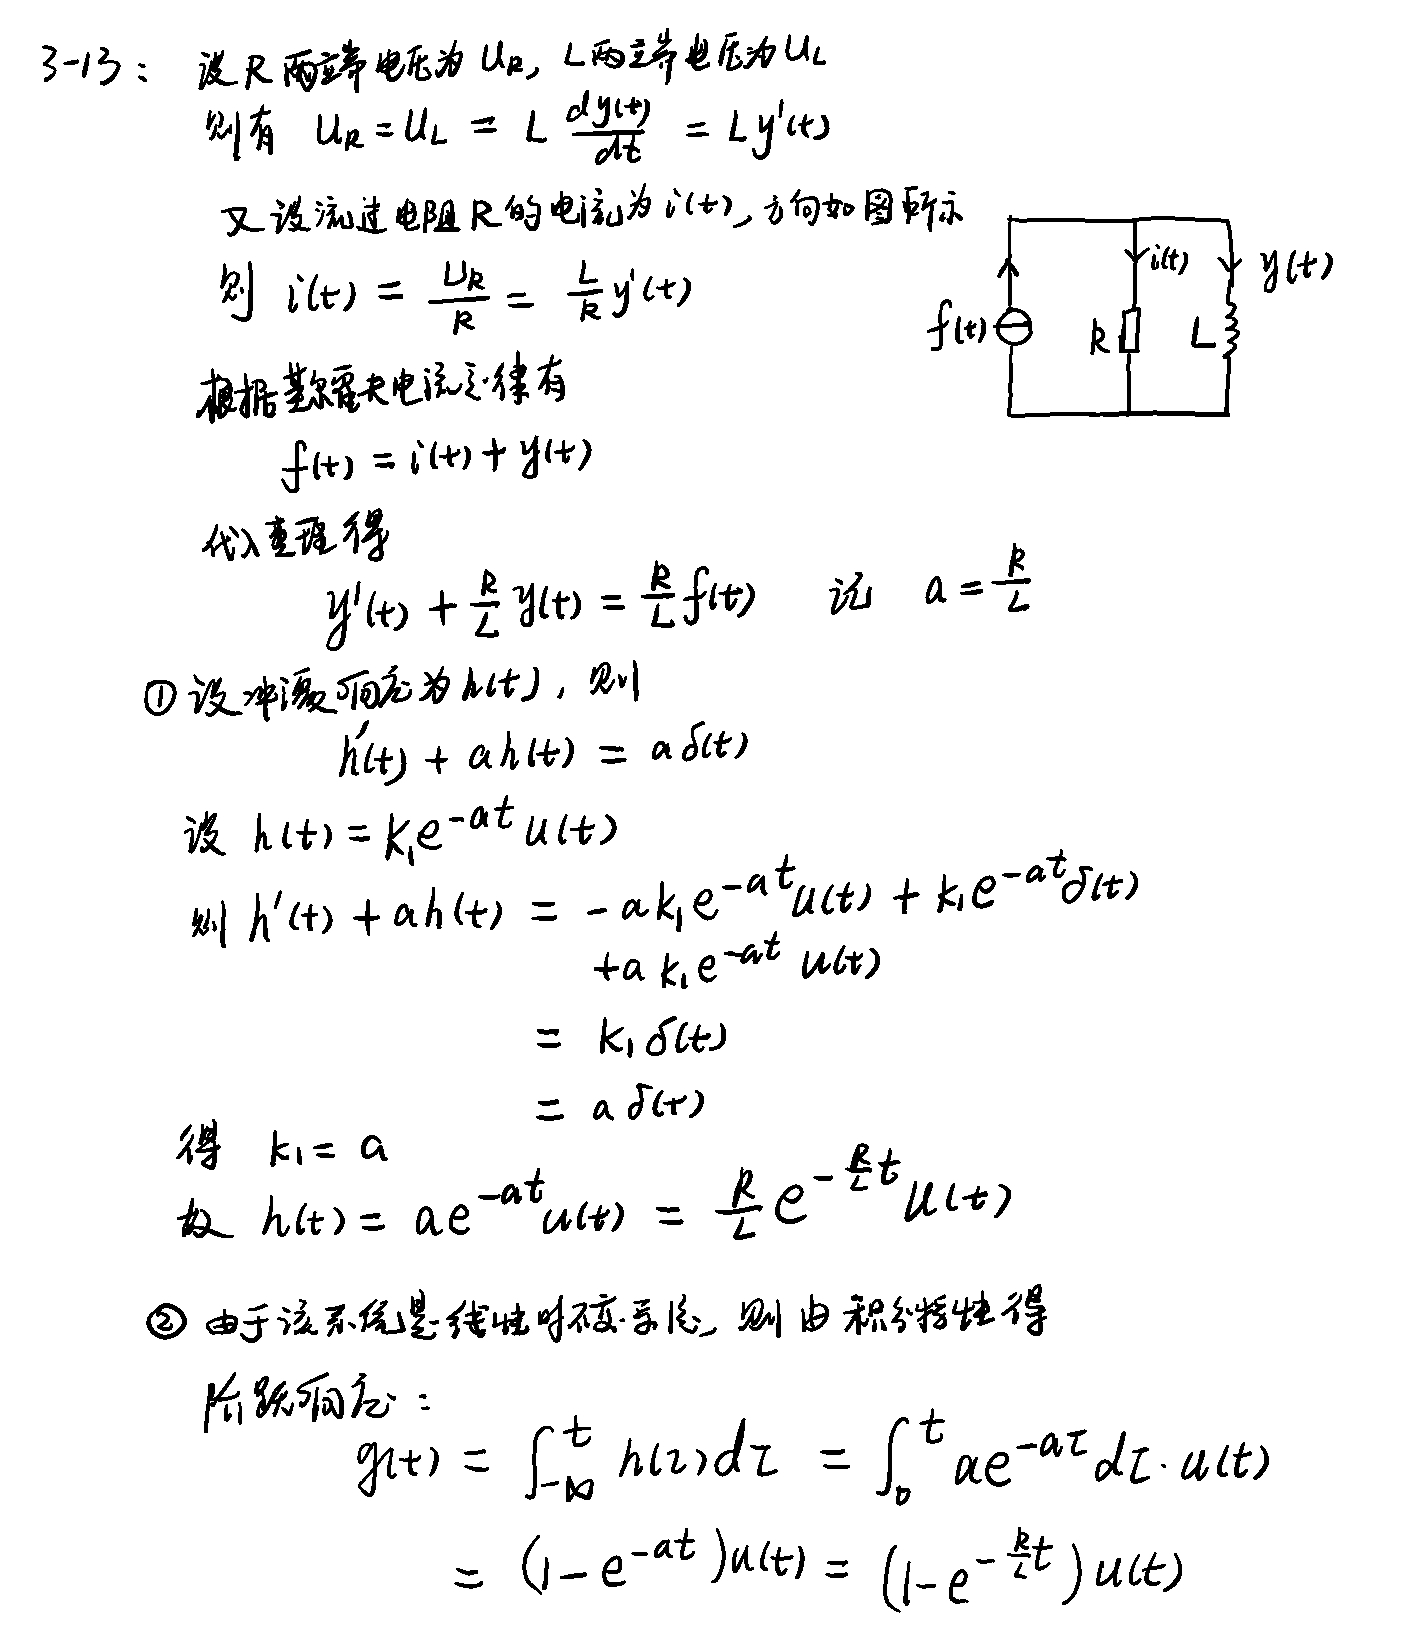 3-13： 设R两端电压为U_R, L两端电压为U_L
则有 U_R = U_L = L dy(t)/dt = Ly'(t)
又设流过电阻R的电流为i(t), 方向如图所示
则 i(t) = U_R/R = L/R y'(t)
根据基尔霍夫电流定律有
f(t) = i(t) + y(t)
代入整理得
y'(t) + R/L y(t) = R/L f(t) 记 a = R/L
f(t) R i(t) L y(t)
① 设冲激响应为h(t), 则
h'(t) + ah(t) = aδ(t)
设 h(t) = k₁e^{-at}u(t)
则 h'(t) + ah(t) = -ak₁e^{-at}u(t) + k₁e^{-at}δ(t)
+ak₁e^{-at}u(t)
= k₁δ(t)
= aδ(t)
得 k₁ = a
故 h(t) = ae^{-at}u(t) = R/L e^{-R/L t}u(t)
② 由于该系统是线性时不变系统, 则由积分特性得
阶跃响应：
g(t) = ∫_{-∞}^{t} h(τ)dτ = ∫_{0}^{t} ae^{-aτ}dτ·u(t)
= (1-e^{-at})u(t) = (1-e^{-R/L t})u(t)